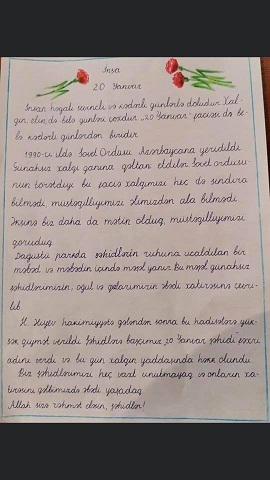 İnşa
20 Yanvar
İnsan həyatı sevincli və kədərli günlərlə doludur. Xal-
qın, elin də belə günləri çoxdur. „20 Yanvar" faciəsi də be-
lə kədərli günlərdən biridir.
1990-cı ildə Sovet Ordusu Azərbaycana yeridildi.
Günahsız xalqı qanına qəltan etdilər. Sovet ordusu-
nun törətdiyi bu faciə xalqımızı heç də sındıra
bilmədi, müstəqilliyimizi əlimizdən ala bilmədi.
Əksinə biz daha da mətin olduq, müstəqilliyimizi
qoruduq.
Dağüstü parkda şəhidlərin ruhuna ucaldılan bir
məbəd və məbədin içində məşəl yanır. Bu məşəl günahsız
şəhidlərimizin, oğul və qızlarımızın əbədi xatirəsinə çevri-
lib.
H. Əliyev hakimiyyətə gələndən sonra bu hadisələrə yük-
sək qiymət verildi. Şəhidlərə başçımız „20 Yanvar şəhidi" fəxri
adını verdi və bu gün xalqın yaddaşında həkk olundu.
Biz şəhidlərimizi heç vaxt unutmayaq və onların xa-
tirəsini qəlbimizdə əbədi yaşadaq.
Allah sizə rəhmət eləsin, şəhidlər!